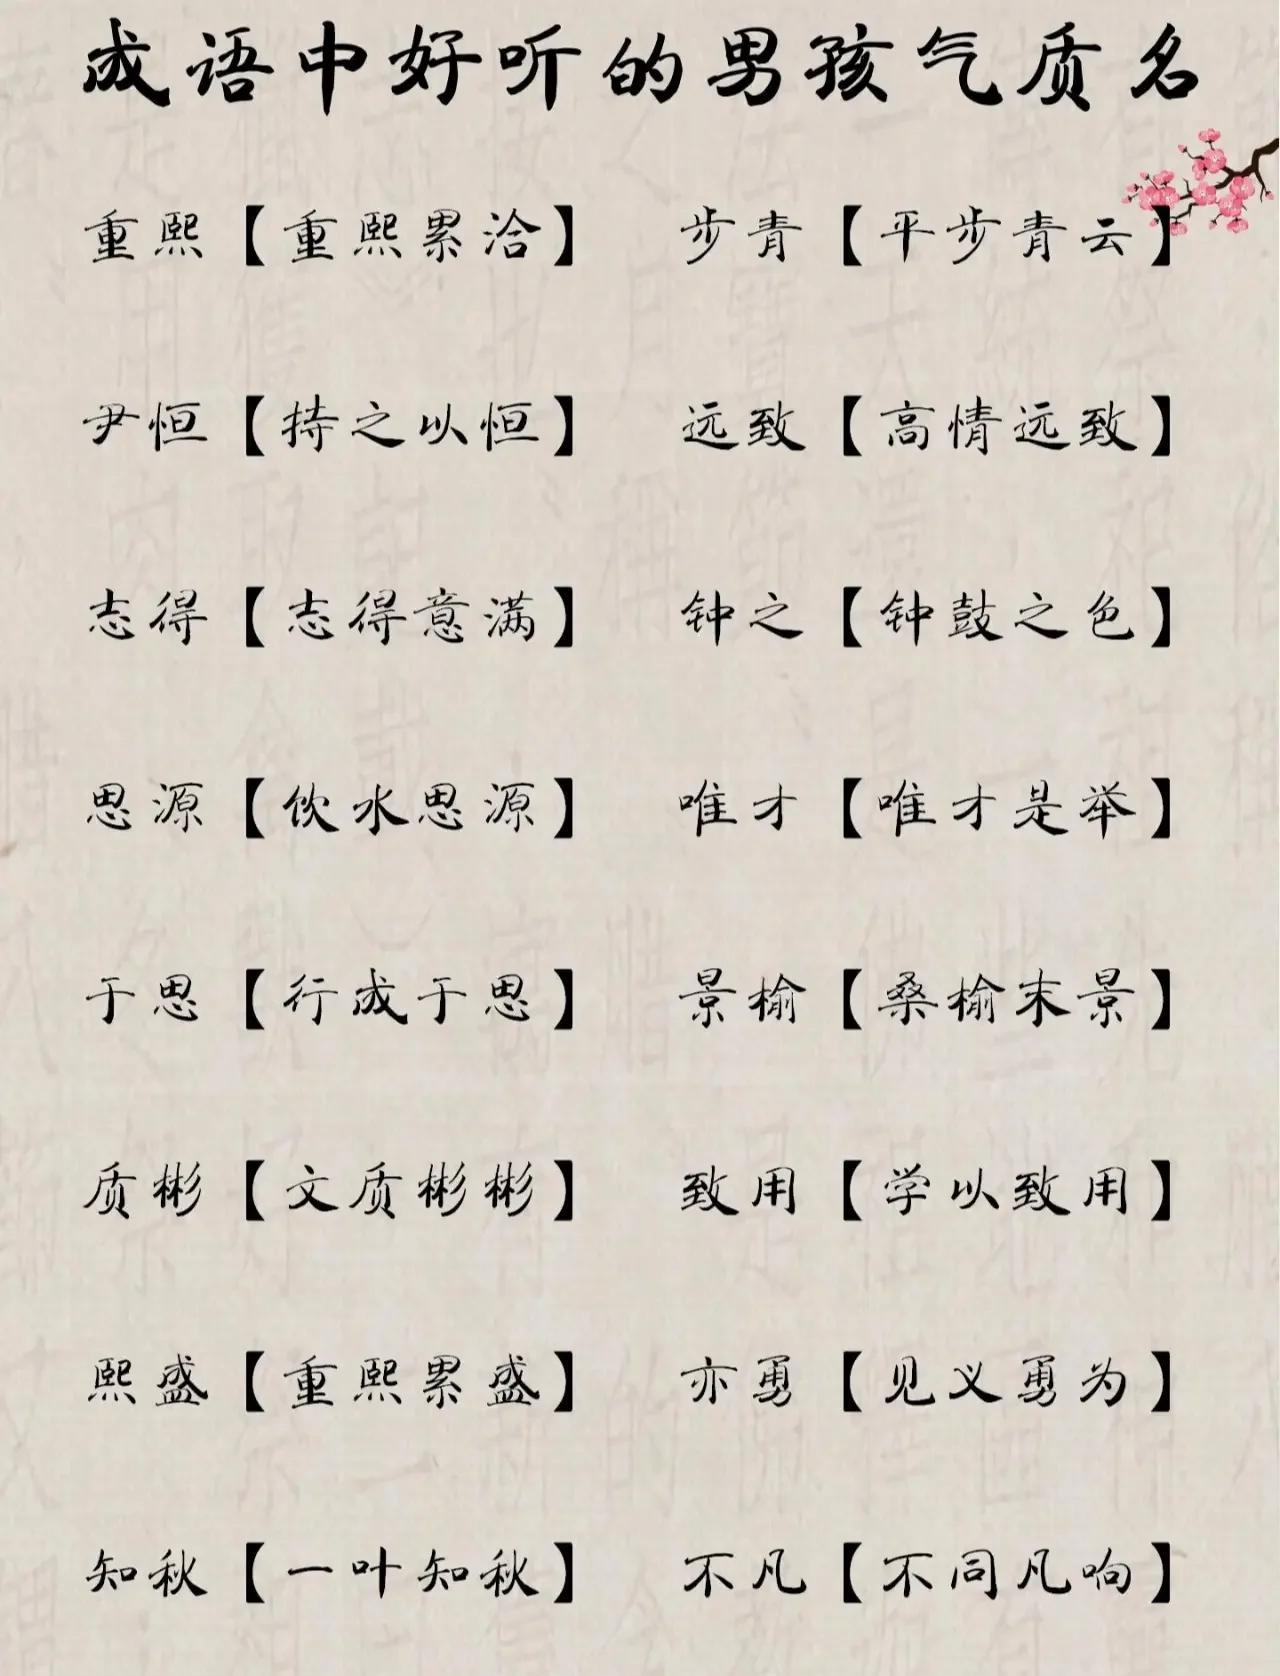 成语中好听的男孩气质名
重熙【重熙累洽】 步青【平步青云】
尹恒【持之以恒】 远致【高情远致】
志得【志得意满】 钟之【钟鼓之色】
思源【饮水思源】 唯才【唯才是举】
于思【行成于思】 景榆【桑榆末景】
质彬【文质彬彬】 致用【学以致用】
熙盛【重熙累盛】 亦勇【见义勇为】
知秋【一叶知秋】 不凡【不同凡响】